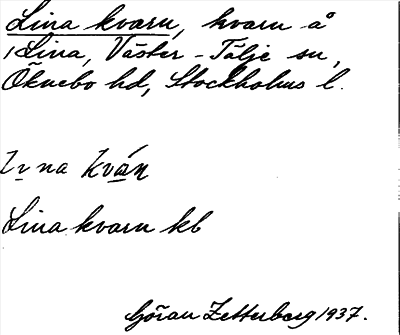 Lina kvarn, kvarn å
Lina, Väster-Tälje sn,
Öknebo hd, Stockholms l.
Lina kvarn kb
Göran Zetterberg 1937.